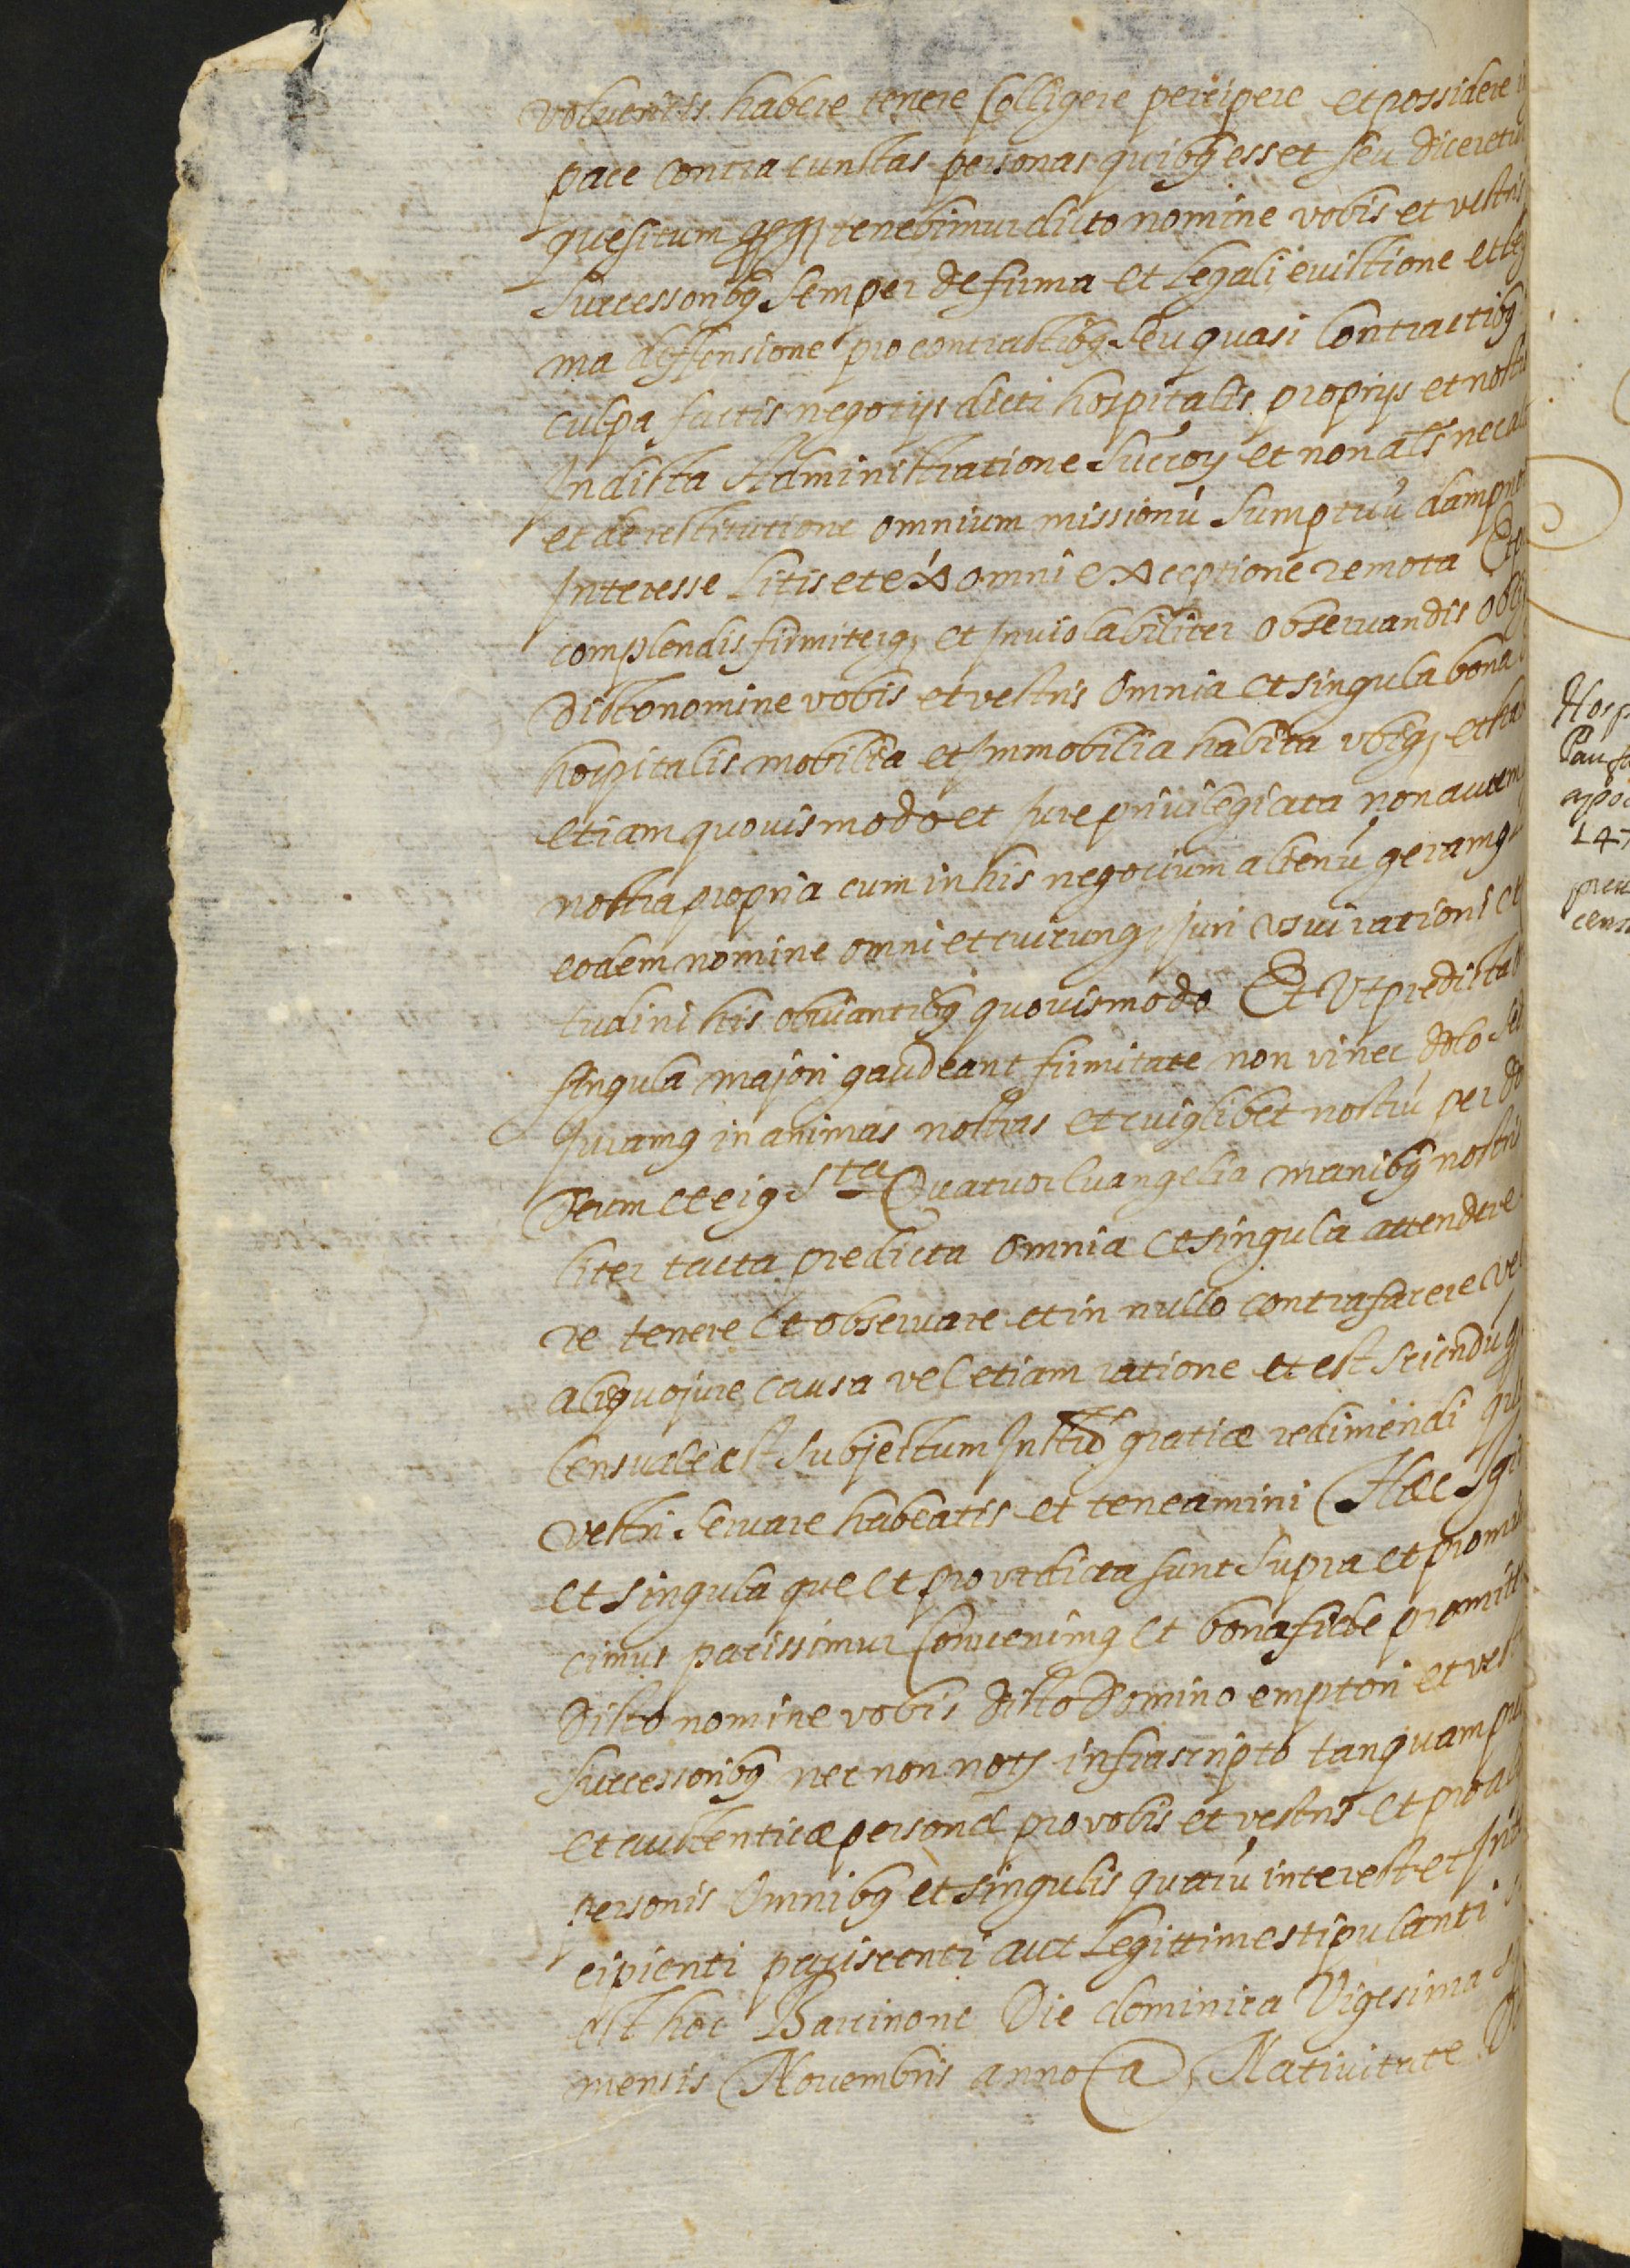 volueritis habere tenere Colligere percipere et possidere
pace Contra cunctas personas quibq esset seu diceretur
quesitum tenebimur dicto nomine vobis et vestris
Successoribq Semper de firma et Legali evictione et leg
ma deffensione pro contractibq Seu quasi Contractibq
culpa factis negotijs dicti hospitalis proprijs et nostra
In dicta Administratione et non als nec al
et de restitutione omnium missionú Sumptuú dampnor
Interesse Litis et exª omni exceptione remota Et
complendis firmiterq, et Inviolabiliter observandis obli
dicto nomine vobis et vestris Omnia et singula bona
hospitalis mobilia et Immobilia habita ubiq, et hab
etiam quovismodo et Jure privilegiata non autem
nostra propria cum in his negocium alienú geramq
eodem nomine omni et cuicunq, Juri Usui rationi et
tudini his obviantibq quovismodo Et Ut predicta
singula majori gaudeant firmitate non vi nec dolo Sed
Juramq in animas nostras et cuiqlibet nostrú per Do
Deum et eiq Sta Quatuor Evangelia manibq nostris
liter tacta predicta Omnia et singula attendere
re tenere et observare et in nullo contrafacere vel
aliquo jure Causa vel etiam ratione et est sciendú q
Censuale est Subjectum Instrō gratiæ redimendi
Vestri Servare habeatis et teneamini Hæc Igi
et singula que et prout dicta sunt Supra et promi
cimus paciscimur Convenimq et bona fide promitt
Dicto nomine vobis dicto Domino emptori et vest
Successoribq nec non noty infrascripto tanquam pu
et autenticæ personæ pro vobis et vestris et pro al
personis Omnibq et singulis quarú interest et Int
cipienti paciscenti acct Legittime stipulanti
est hoc Barcinone Die dominica Vigesima
mensis Novembris anno a Nativitate D
Hosp
Pau
apoc
147
cens